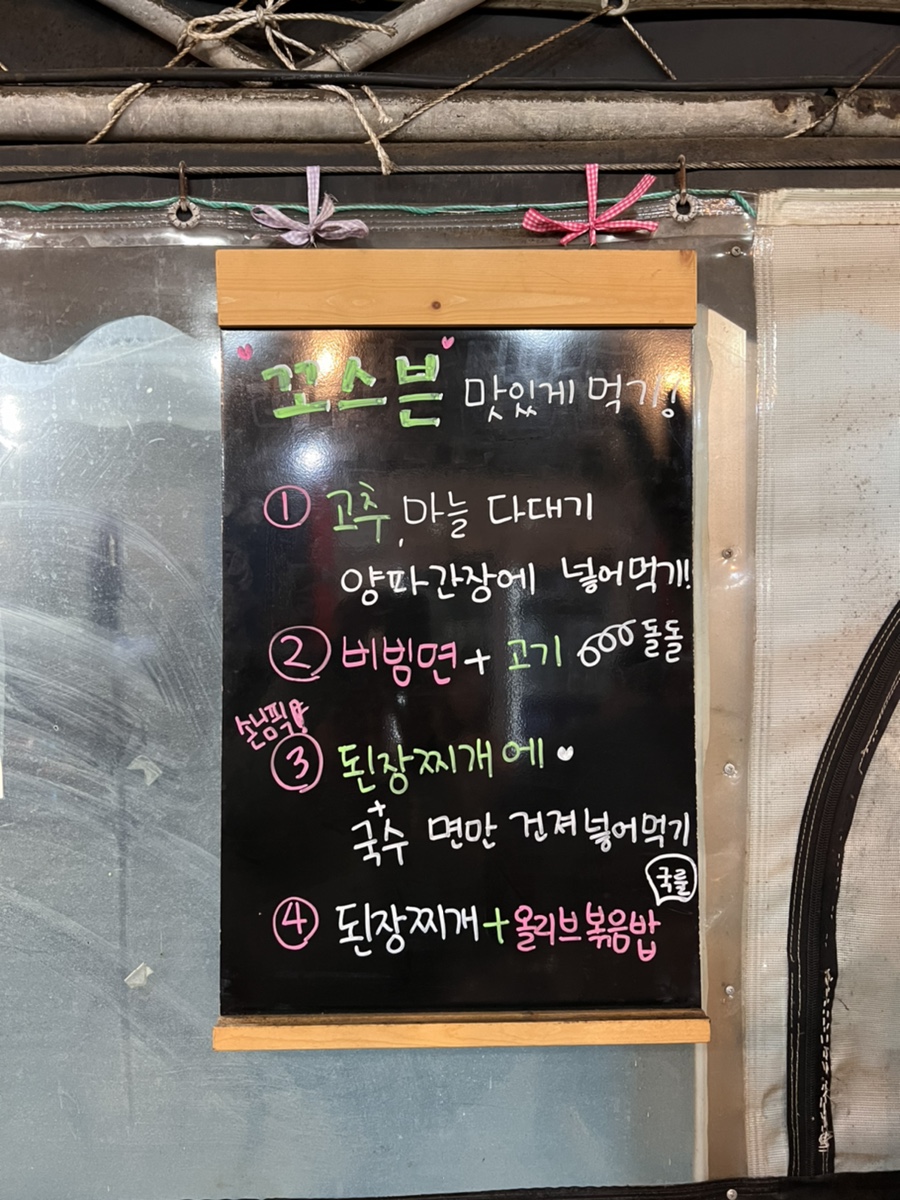 꼬스븐 맛있게 먹기!
① 고추, 마늘 다대기
양파간장에 넣어먹기!
② 비빔면 + 고기 돌돌
손님픽
③ 된장찌개에
+
국수 면만 건져 넣어먹기
국룰
④ 된장찌개+올리브볶음밥